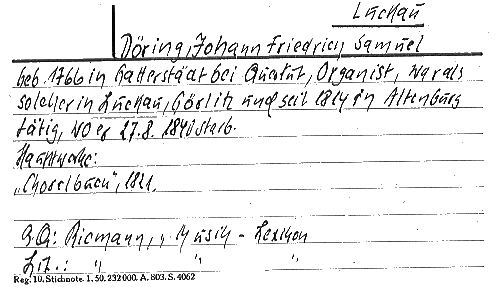 Luckau
Döring, Johann Friedrich Samuel
geb. 1766 in Gatterstädt bei Querfurt, Organist, war als
solcher in Luckau, Görlitz und seit 1814 in Altenburg
tätig, wo er 27.8. 1840 starb.
Hauptwerke:
„Choralbuch", 1821.
Q.Q: Riemann, „Musik - Lexikon
Lit.: " " "
Reg. 10. Stichnote. 1. 50. 232000. A. 803. S. 4062